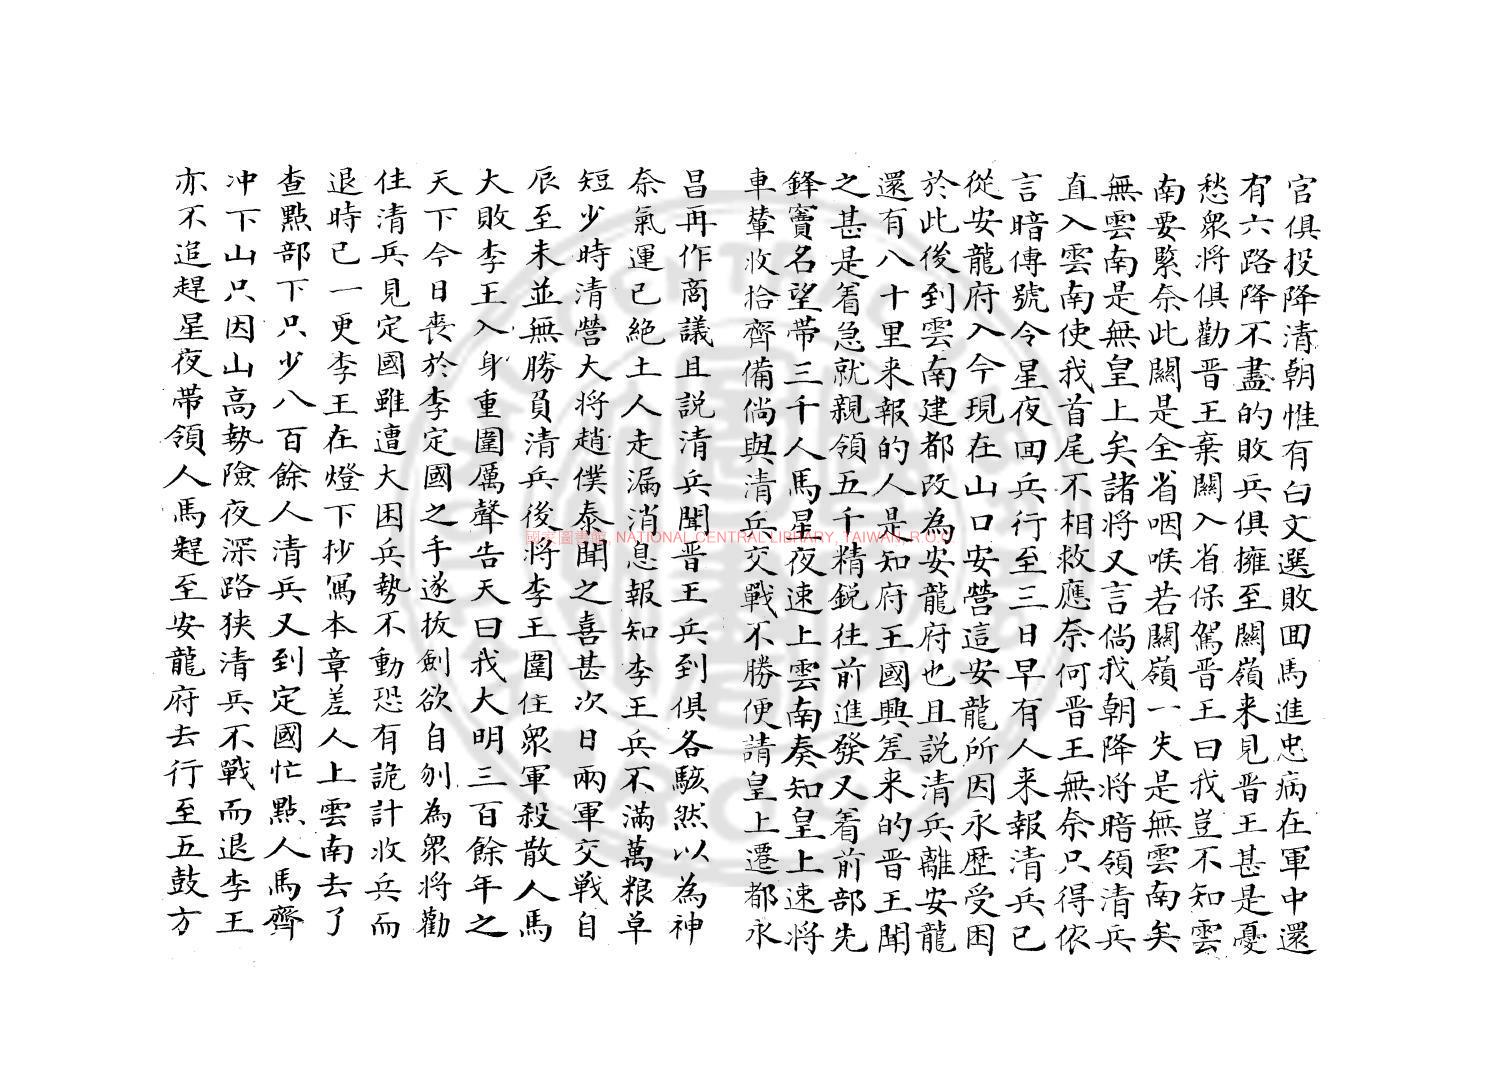 官俱投降清朝惟有白文選敗囬馬進忠病在軍中還
有六路降不盡的敗兵俱擁至關嶺来見晋王甚是憂
愁衆將俱勸晋王棄關入省保駕晋王曰我豈不知雲
南要緊奈此關是全省咽喉若關嶺一失是無雲南矣
無雲南是無皇上矣諸將又言倘我朝降將暗領清兵
直入雲南使我首尾不相救應奈何晋王無奈只得依
言暗傳號令星夜囬兵行至三日早有人来報清兵已
從安龍府入今現在山口安營這安龍所因永歴受困
於此後到雲南建都改為安龍府也且説清兵離安龍
還有八十里来報的人是知府王國興差来的晋王聞
之甚是着急就親領五千精鋭往前進發又着前部先
鋒竇名望帶三千人馬星夜速上雲南奏知皇上速將
車輦收拾齊備倘與清兵交戰不勝便請皇上遷都永
昌再作商議且説清兵聞晋王兵到俱各駭然以為神
奈氣運已絶土人走漏消息報知李王兵不滿萬粮草
短少時清營大将趙僕泰聞之喜甚次日兩軍交戰自
辰至未並無勝負清兵後將李王圍住衆軍殺散人馬
大敗李王入身重圍厲聲告天曰我大明三百餘年之
天下今日喪於李定國之手遂抜劍欲自刎為衆將勸
住清兵見定國雖遭大困兵勢不動恐有詭計收兵而
退時已一更李王在燈下抄寫本章差人上雲南去了
查點部下只少八百餘人清兵又到定國忙點人馬齊
冲下山只因山高勢險夜深路狹清兵不戰而退李王
亦不追趕星夜帶領人馬趕至安龍府去行至五鼓方
國家圖書館, NATIONAL CENTRAL LIBRARY, TAIWAN, R.O.C.